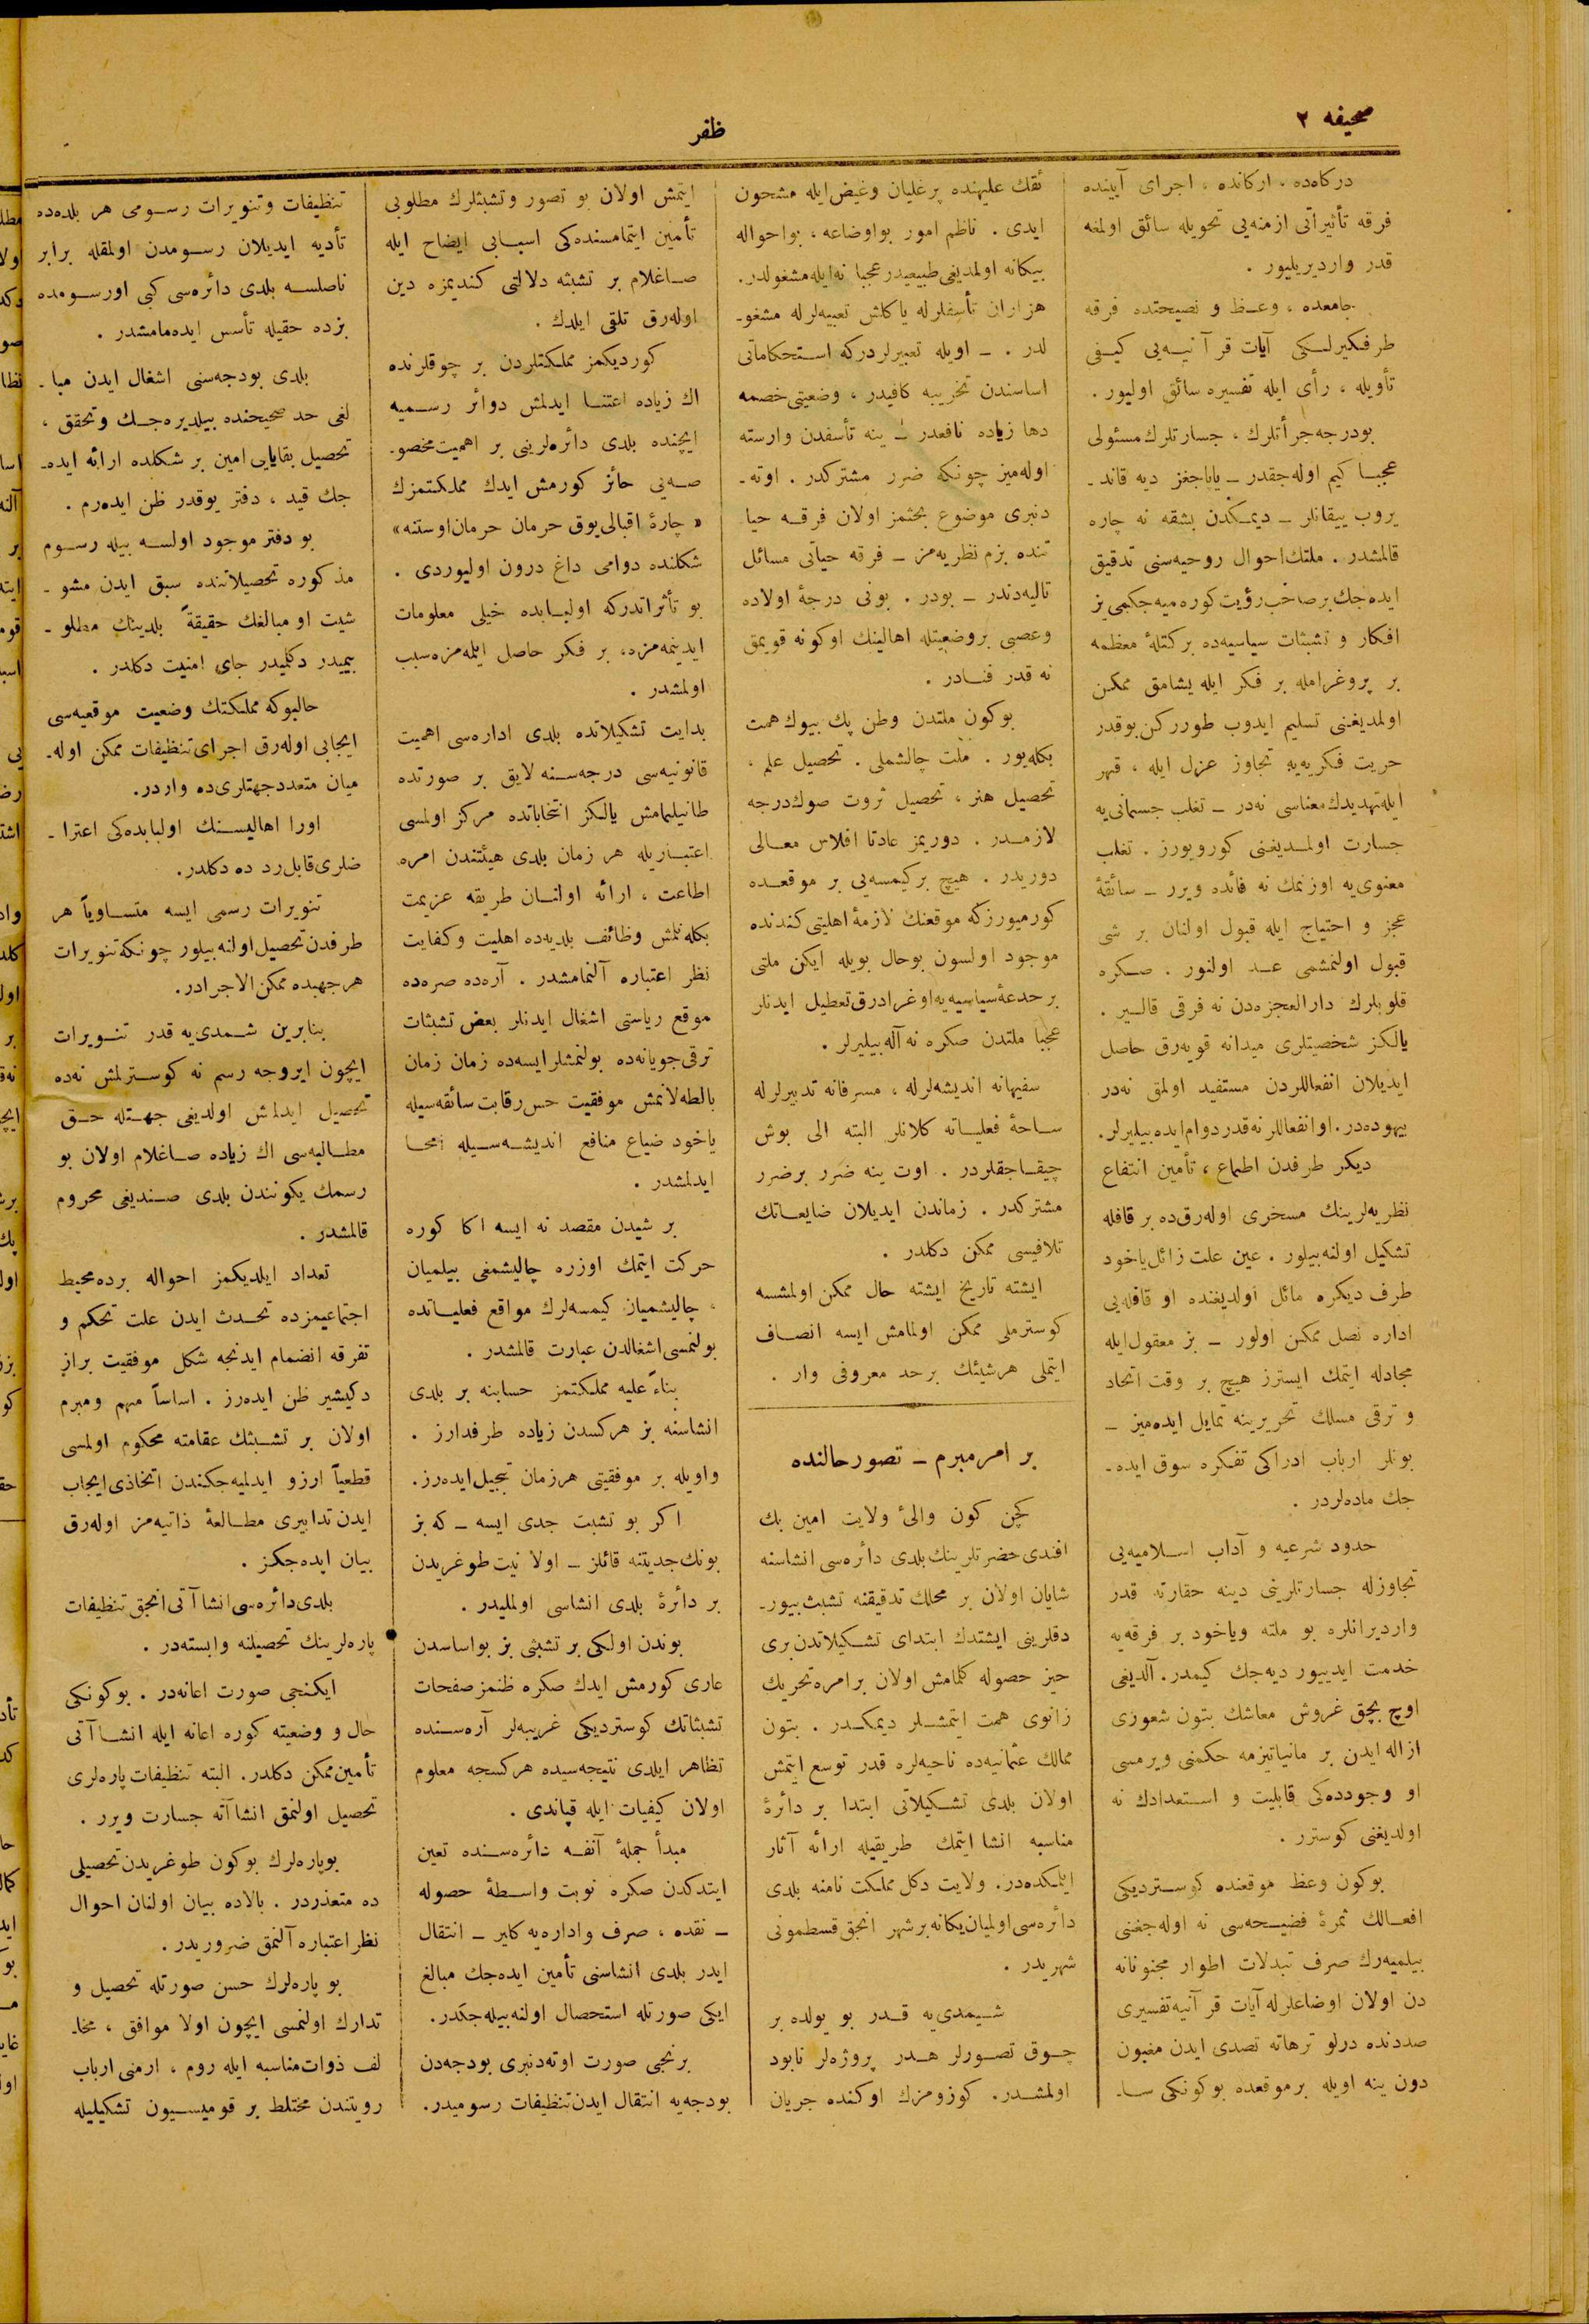 صحیفه ٢
ظفر
درکاه‌ده ، ارکانده ، اجرای آییننده
فرقه تأثیراتی ازمنه‌یی تحویله سائق اولمغه
قدر واردیریلیور .
جامعده ، وعظ و نصیحتده فرقه
طرفکیرلکی آیات قرآنیه‌یی کیفی
تأویله ، رأی ایله تفسیره سائق اولیور .
بودرجه جرأتلرك ، جسارتلرك مسئولی
عجبا کیم اوله‌جقدر ـ یاپاجغز دیه قاند ـ
یروب ییقانلر ـ دیمکدن بشقه نه چاره
قالمشدر . ملتك احوال روحیه‌سنی تدقیق
ایده‌جك بر صاحب رؤیت کوره‌میه‌جکمی بز
افکار و تشبثات سیاسیه‌ده بر کتلهٔ معظمه
بر پروغرامله بر فکر ایله یشامق ممکن
اولمدیغنی تسلیم ایدوب طوررکن بوقدر
حریت فکریه‌یه تجاوز عزل ایله ، قهر
ایله تهدیدك معناسی نه‌در ـ تغلب جسمانی‌یه
جسارت اولمدیغنی کورویورز . تغلب
معنوی‌یه اوزنمك نه فائده ویرر ـ سائقهٔ
عجز و احتیاج ایله قبول اولنان بر شی
قبول اولنمشمی عد اولنور . صکره
قلوبلرك دارالعجزه‌دن نه فرقی قالیر .
یالکز شخصیتلری میدانه قویه‌رق حاصل
ایدیلان انفعاللردن مستفید اولمق نه‌در
بیهوده‌در . او انفعاللر نه قدر دوام ایده بیلیرلر .
دیکر طرفدن اطماع ، تأمین انتفاع
نظریه‌لرینك مسخری اوله‌رق‌ده بر قافله
تشکیل اولنه بیلور . عین علت زائل یاخود
طرف دیکره مائل اولدیغنده او قافله‌یی
اداره نصل ممکن اولور ـ بز معقول ایله
مجادله ایتمك ایسترز هیچ بر وقت اتحاد
و ترقی مسلك تحریرینه تمایل ایده‌میز ـ
بونلر ارباب ادراکی تفکره سوق ایده ـ
جك ماده‌لردر .
حدود شرعیه و آداب اسلامیه‌یی
تجاوزله جسارتلرینی دینه حقارته قدر
واردیرانلره بو ملته ویاخود بر فرقه‌یه
خدمت ایدییور دیه‌جك کیمدر . آلدیغی
اوچ بچق غروش معاشك بتون شعوزی
ازاله ایدن بر مانیاتیزمه حکمنی ویرمسی
او وجودده‌کی قابلیت و استعدادك نه
اولدیغنی کوسترر .
بوکون وعظ موقعنده کوستردیکی
افعالك ثمرهٔ فضیحه‌سی نه اوله‌جغنی
بیلمیه‌رك صرف تبدلات اطوار مجنونانه
دن اولان اوضاعلرله آیات قرآنیه تفسیری
صددنده درلو ترهاته تصدی ایدن مغبون
دون ینه اویله بر موقعده بوکونکی سا ـ
ئقك علیهنده پرغلیان وغیض ایله مشحون
ایدی . ناظم امور بو اوضاعه ، بو احواله
بیکانه اولمدیغی طبیعیدر عجبا نه ایله مشغولدر .
هزاران تأسفلرله یاکلش تعبیه‌لرله مشغو ـ
لدر . ـ اویله تعبیرلردرکه استحکاماتی
اساسندن تخریبه کافیدر ، وضعیتی خصمه
دها زیاده نافعدر ـ ینه تأسفدن وارسته
اوله‌میز چونکه ضرر مشترکدر . اوته ـ
دنبری موضوع بحثمز اولان فرقه حیا
تنده بزم نظریه‌مز ـ فرقه حیاتی مسائل
تالیه‌دندر ـ بودر . بونی درجهٔ اولاده
وعصبی بر وضعیتله اهالینك اوکونه قویمق
نه قدر فنادر .
بوکون ملتدن وطن پك بیوك همت
بکله‌یور . ملت چالشملی . تحصیل علم ،
تحصیل هنر ، تحصیل ثروت صوك درجه
لازمدر . دوریمز عادتا افلاس معالی
دوریدر . هیچ برکیمسه‌یی بر موقعده
کورمیورزکه موقعنك لازمهٔ اهلیتی کندنده
موجود اولسون بوحال بویله ایکن ملتی
بر خدعهٔ سیاسیه‌یه اوغرادرق تعطیل ایدنلر
عجبا ملتدن صکره نه آله بیلیرلر .
سفیهانه اندیشه‌لرله ، مسرفانه تدبیرلرله
ساحهٔ فعلیاته کلانلر البته الی بوش
چیقاجقلردر . اوت ینه ضرر برضرر
مشترکدر . زماندن ایدیلان ضایعاتك
تلافیسی ممکن دکلدر .
ایشته تاریخ ایشته حال ممکن اولمشسه
کوسترملی ممکن اولمامش ایسه انصاف
ایتملی هر شیئك بر حد معروفی وار .
بر امر مبرم ـ تصور حالنده
کچن کون والیٔ ولایت امین بك
افندی حضرتلرینك بلدی دائره‌سی انشاسنه
شایان اولان بر محلك تدقیقنه تشبث بیور ـ
دقلرینی ایشتدك ابتدای تشکیلاتدن بری
حیز حصوله کلمامش اولان بر امره تحریك
زانوی همت ایتمشلر دیمکدر . بتون
ممالك عثمانیه‌ده ناحیه‌لره قدر توسع ایتمش
اولان بلدی تشکیلاتی ابتدا بر دائرهٔ
مناسبه انشا ایتمك طریقیله ارائه آثار
ایلمکده‌در . ولایت دکل مملکت نامنه بلدی
دائره‌سی اولمیان یکانه بر شهر انجق قسطمونی
شهریدر .
شیمدی‌یه قدر بو یولده بر
چوق تصورلر هدر پروژه‌لر نابود
اولمشدر . کوزومزك اوکنده جریان
ایتمش اولان بو تصور وتشبثلرك مطلوبی
تأمین ایتمامسنده‌کی اسبابی ایضاح ایله
صاغلام بر تشبثه دلالتی کندیمزه دین
اوله‌رق تلقی ایلدك .
کوردیکمز مملکتلردن بر چوقلرنده
اك زیاده اعتنا ایدلمش دوائر رسمیه
ایچنده بلدی دائره‌لرینی بر اهمیت مخصو ـ
صه‌یی حائز کورمش ایدك مملکتمزك
« چارهٔ اقبالی یوق حرمان حرمان اوستنه »
شکلنده دوامی داغ درون اولیوردی .
بو تأثراتدرکه اولبابده خیلی معلومات
ایدینمه‌مزه ، بر فکر حاصل ایلمه‌مزه سبب
اولمشدر .
بدایت تشکیلاتده بلدی اداره‌سی اهمیت
قانونیه‌سی درجه‌سنه لایق بر صورتده
طانیلمامش یالکز انتخاباتده مرکز اولمسی
اعتباریله هر زمان بلدی هیئتندن امره
اطاعت ، ارائه اولنان طریقه عزیمت
بکله‌نلمش وظائف بلدیه‌ده اهلیت وکفایت
نظر اعتباره آلنمامشدر . آره‌ده صره‌ده
موقع ریاستی اشغال ایدنلر بعض تشبثات
ترقی‌جویانه‌ده بولنمشلر ایسه‌ده زمان زمان
بالطه‌لانمش موفقیت حس رقابت سائقه‌سیله
یاخود ضیاع منافع اندیشه‌سیله امحا
ایدلمشدر .
بر شیدن مقصد نه ایسه اکا کوره
حرکت ایتمك اوزره چالیشمغی بیلمیان
، چالیشمیان کیمسه‌لرك مواقع فعلیاتده
بولنمسی اشغالدن عبارت قالمشدر .
بناءً علیه مملکتمز حسابنه بر بلدی
انشاسنه بز هرکسدن زیاده طرفدارز .
واویله بر موفقیتی هرزمان تبجیل ایده‌رز .
اکر بو تشبث جدی ایسه ـ که بز
بونك جدیتنه قائلز ـ اولا نیت طوغریدن
بر دائرهٔ بلدی انشاسی اولملیدر .
بوندن اولکی بر تشبثی بز بو اساسدن
عاری کورمش ایدك صکره ظنمز صفحات
تشبثاتك کوستردیکی غریبه‌لر آره‌سنده
تظاهر ایلدی نتیجه‌سیده هرکسجه معلوم
اولان کیفیات ایله قپاندی .
مبدأ جملهٔ آنفه دائره‌سنده تعین
ایتدکدن صکره نوبت واسطهٔ حصوله
ـ نقده ، صرف واداره‌یه کلیر ـ انتقال
ایدر بلدی انشاسنی تأمین ایده‌جك مبالغ
ایکی صورتله استحصال اولنه بیله‌جکدر .
برنجی صورت اوته‌دنبری بودجه‌دن
بودجه‌یه انتقال ایدن تنظیفات رسومیدر .
تنظیفات وتنویرات رسومی هر بلده‌ده
تأدیه ایدیلان رسومدن اولمقله برابر
ناصلسه بلدی دائره‌سی کبی اورسومده
بزده حقیله تأسس ایده‌مامشدر .
بلدی بودجه‌سنی اشغال ایدن مبا ـ
لغی حد صحیحنده بیلدیره‌جك وتحقق ،
تحصیل بقایایی امین بر شکلده ارائه ایده ـ
جك قید ، دفتر یوقدر ظن ایده‌رم .
بو دفتر موجود اولسه بیله رسوم
مذکوره تحصیلاتنده سبق ایدن مشو ـ
شیت او مبالغك حقیقةً بلدینك مطلو ـ
بیمیدر دکلمیدر جای امنیت دکلدر .
حالبوکه مملکتك وضعیت موقعیه‌سی
ایجابی اوله‌رق اجرای تنظیفات ممکن اوله ـ
میان متعدد جهتلری‌ده واردر .
اورا اهالیسنك اولبابده‌کی اعترا ـ
ضلری قابل رد ده دکلدر .
تنویرات رسمی ایسه متساویاً هر
طرفدن تحصیل اولنه بیلور چونکه تنویرات
هر جهبده ممکن الاجرادر .
بنابرین شمدی‌یه قدر تنویرات
ایچون ایروجه رسم نه کوسترلمش نه‌ده
تحصیل ایدلمش اولدیغی جهتله حق
مطالبه‌سی اك زیاده صاغلام اولان بو
رسمك یکونندن بلدی صندیغی محروم
قالمشدر .
تعداد ایلدیکمز احواله برده محیط
اجتماعیمزده تحدث ایدن علت تحکم و
تفرقه انضمام ایدنجه شکل موفقیت براز
دکیشیر ظن ایده‌رز . اساساً مهم ومبرم
اولان بر تشبثك عقامته محکوم اولمسی
قطعیاً ارزو ایدلمیه‌جکندن اتخاذی ایجاب
ایدن تدابیری مطالعهٔ ذاتیه‌مز اوله‌رق
بیان ایده‌جکز .
بلدی دائره‌سی انشاآتی انجق تنظیفات
پاره‌لرینك تحصیلنه وابسته‌در .
ایکنجی صورت اعانه‌در . بوکونکی
حال و وضعیته کوره اعانه ایله انشاآتی
تأمین ممکن دکلدر . البته تنظیفات پاره‌لری
تحصیل اولنمق انشاآته جسارت ویرر .
بوپاره‌لرك بوکون طوغریدن تحصیلی
ده متعذردر . بالاده بیان اولنان احوال
نظر اعتباره آلنمق ضروریدر .
بو پاره‌لرك حسن صورتله تحصیل و
تدارك اولنمسی ایچون اولا موافق ، مخا ـ
لف ذوات مناسبه ایله روم ، ارمنی ارباب
رویتندن مختلط بر قومیسیون تشکیلیله